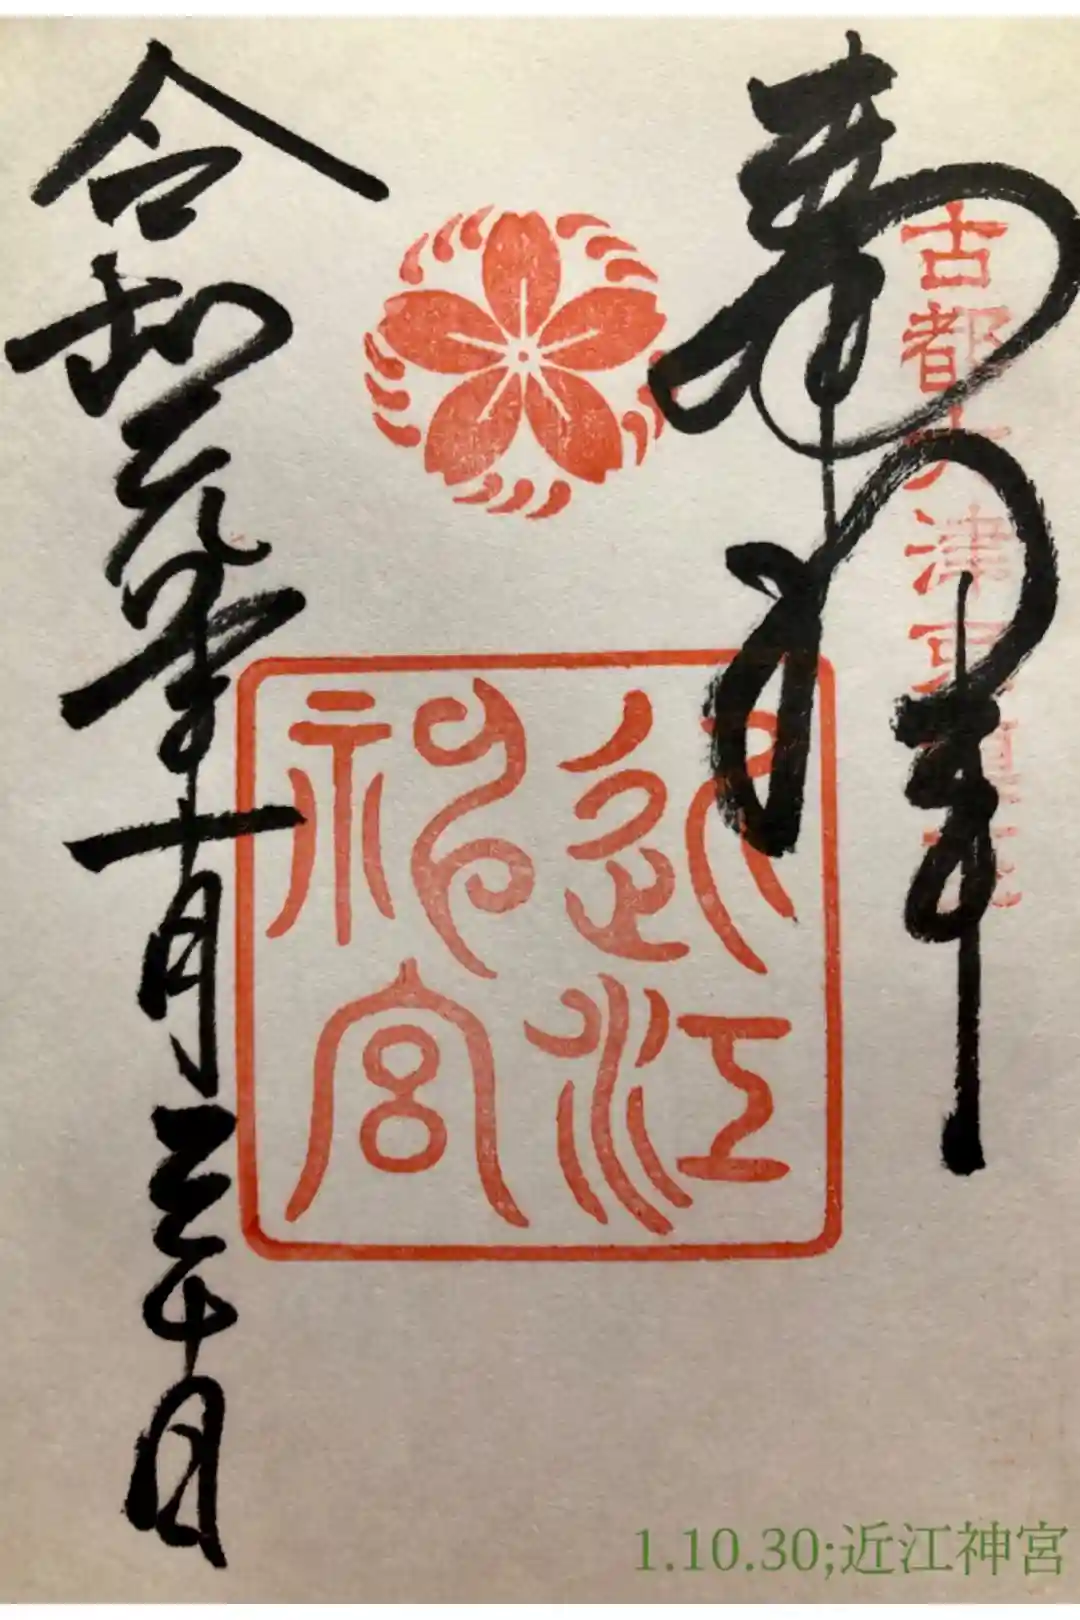 奉拝
古都大津
近江
神宮
令和元年十月三十日
1.10.30;近江神宮